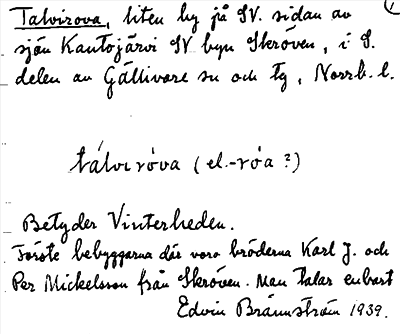 Talvirova, liten by på SV. sidan av
sjön Kantojärvi SV byn Skröven, i S.
delen av Gällivare sn och tg, Norrb. l.
tálviróva (el. -róa ?)
Betyder Vinterheden.
Förste bebyggarna där voro bröderna Karl J. och
Per Mickelsson från Skröven. Man talar enbart
Edvin Brännström 1939.